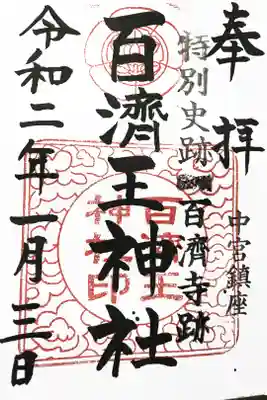 奉拝
中宮鎮座
特別史跡 百濟寺跡
百濟王神社
百済王
神社印
令和二年一月三日